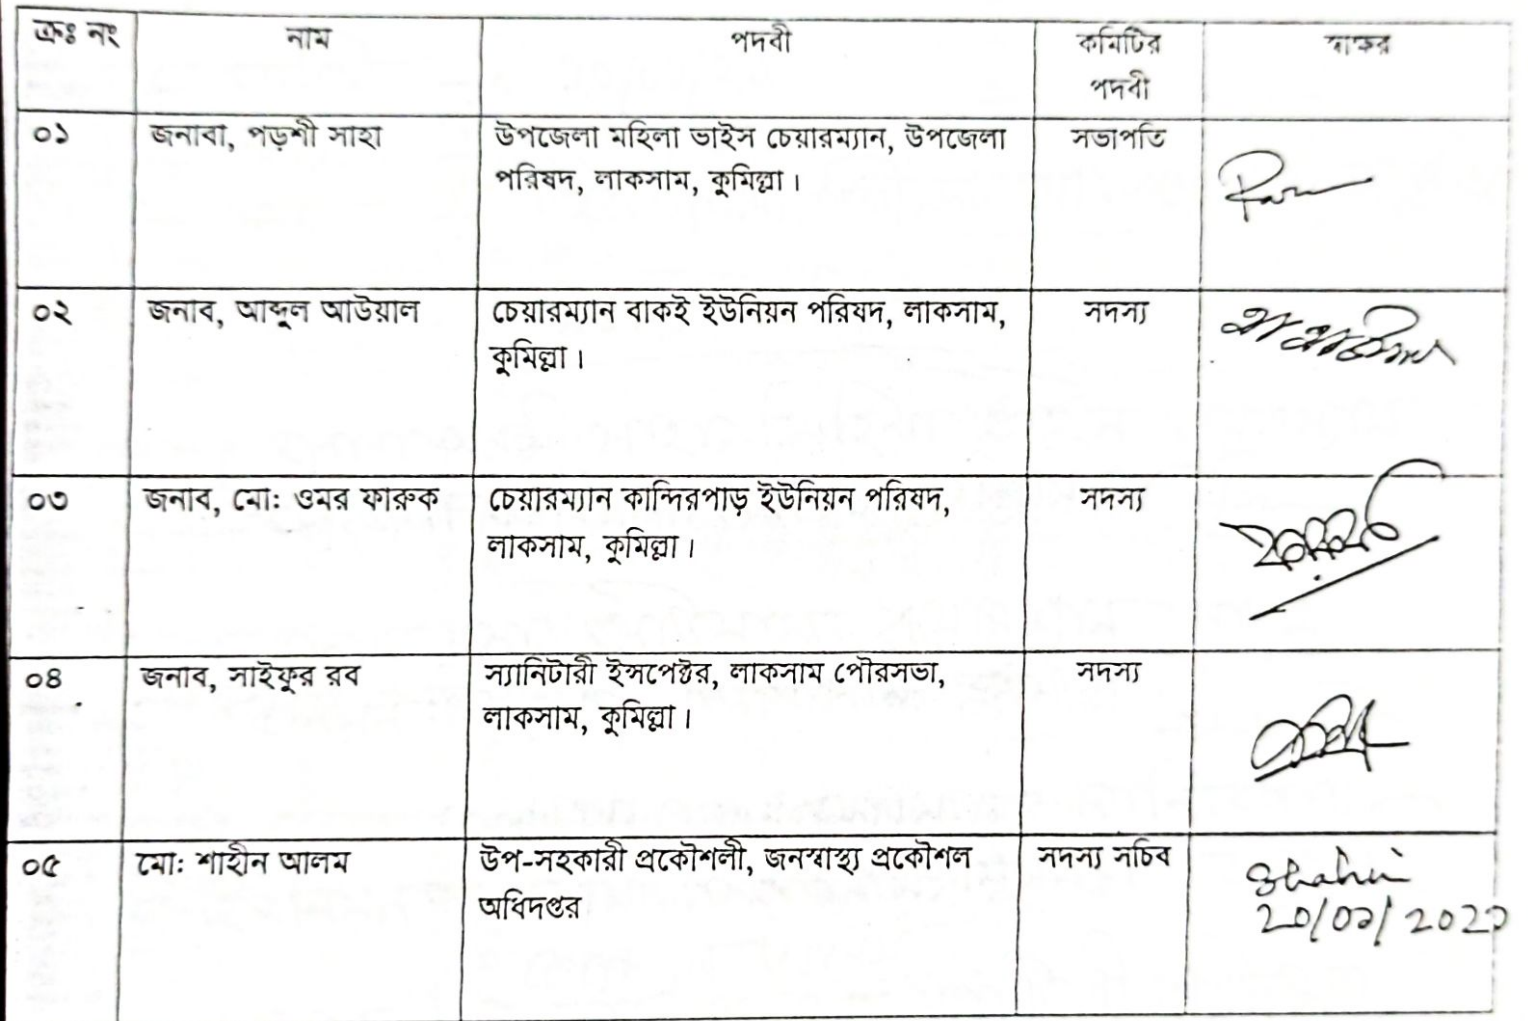 ক্রঃ নং নাম পদবী কমিটির পদবী স্বাক্ষর
০১ জনাবা, পড়শী সাহা উপজেলা মহিলা ভাইস চেয়ারম্যান, উপজেলা সভাপতি
পরিষদ, লাকসাম, কুমিল্লা।
০২ জনাব, আব্দুল আউয়াল চেয়ারম্যান বাকই ইউনিয়ন পরিষদ, লাকসাম, সদস্য
কুমিল্লা।
০৩ জনাব, মো: ওমর ফারুক চেয়ারম্যান কান্দিরপাড় ইউনিয়ন পরিষদ, সদস্য
লাকসাম, কুমিল্লা।
০৪ জনাব, সাইফুর রব স্যানিটারী ইন্সপেক্টর, লাকসাম পৌরসভা, সদস্য
লাকসাম, কুমিল্লা।
০৫ মো: শাহীন আলম উপ-সহকারী প্রকৌশলী, জনস্বাস্থ্য প্রকৌশল সদস্য সচিব Shahin
অধিদপ্তর